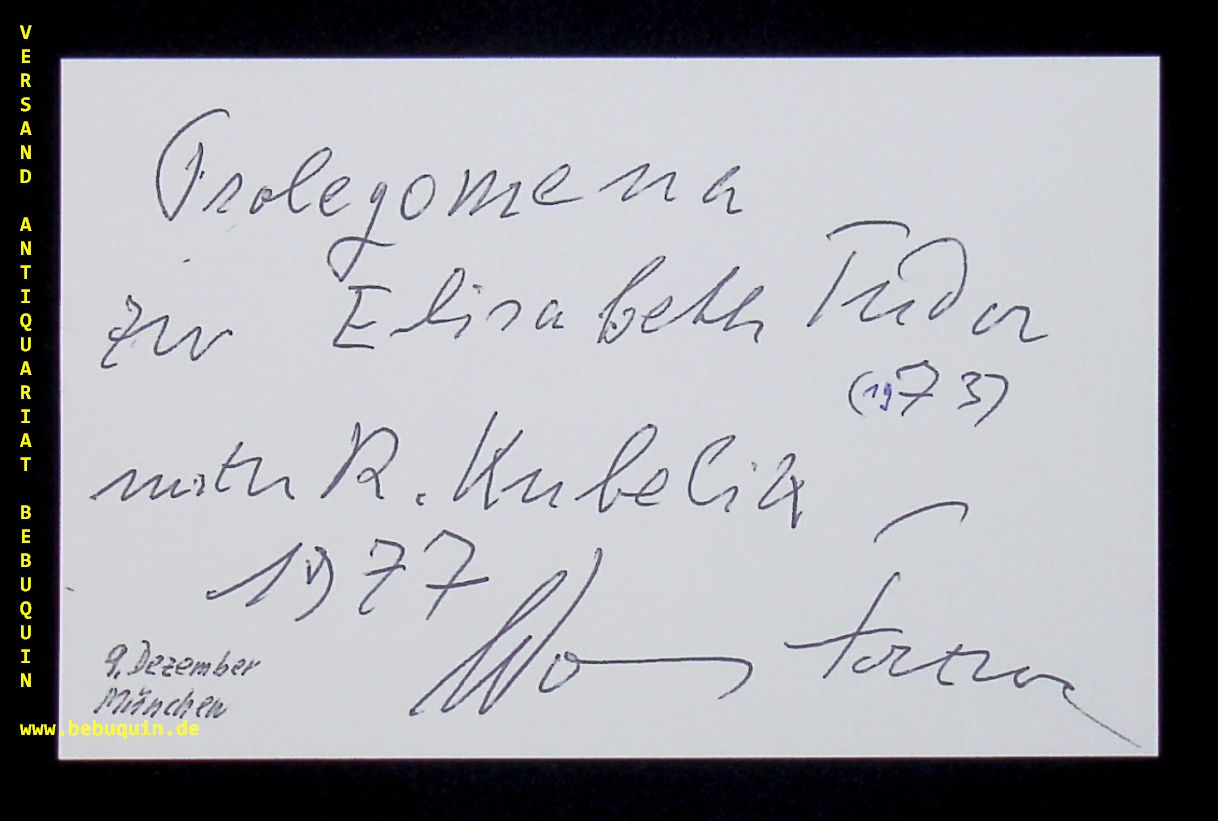 VERSAND ANTIQUARIAT BEBUQUIN
www.bebuquin.de
Prolegomena
zur Elisabeth Tudor
(1973)
mit R. Kubelik
1977
Wolfgang Fortner
9. Dezember
München